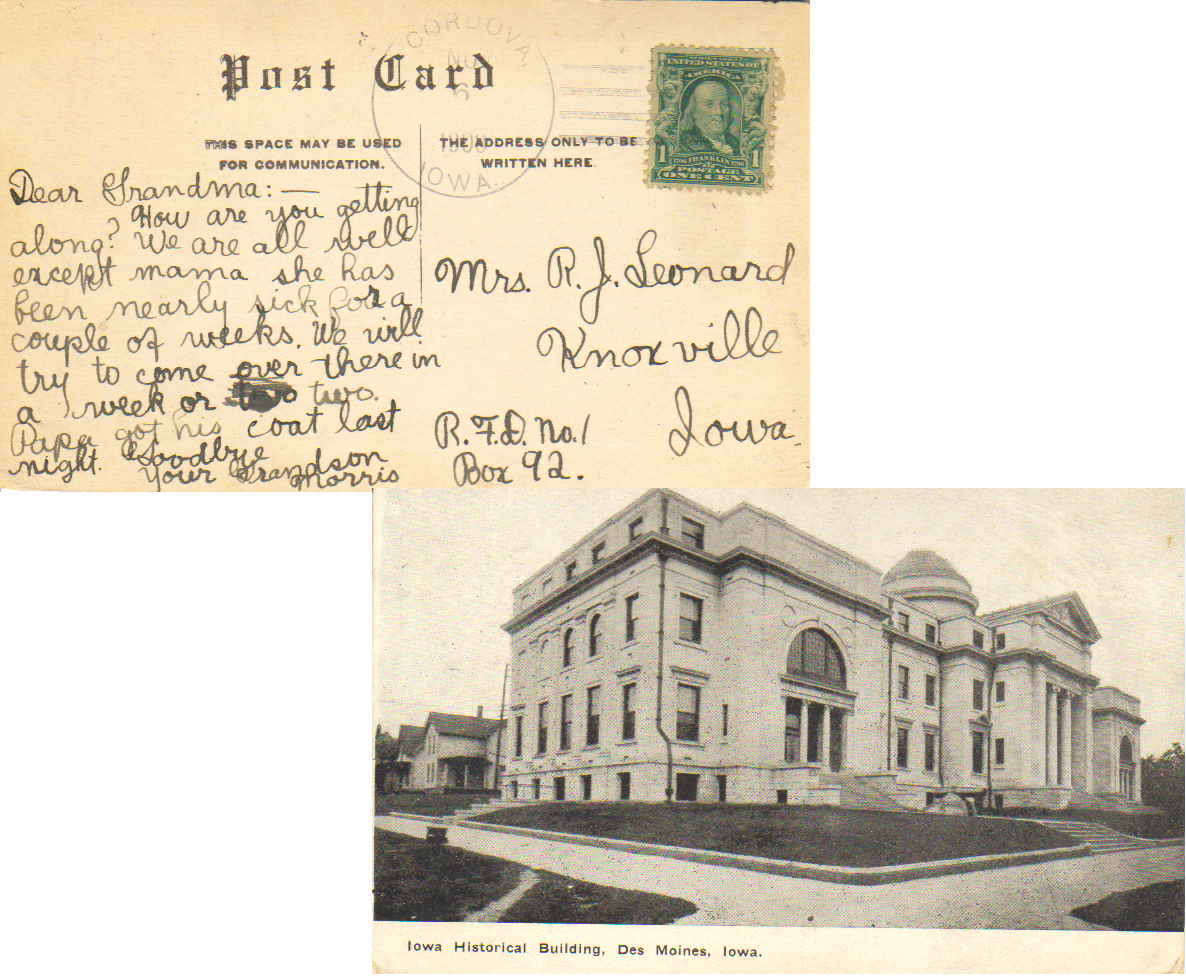 Post Card
CORDOVA,
6
IOWA.
UNITED STATES OF
AMERICA
1 FRANKLIN 1
POSTAGE
ONE CENT
THIS SPACE MAY BE USED
FOR COMMUNICATION.
THE ADDRESS ONLY TO BE
WRITTEN HERE.
Dear Grandma:—
How are you getting
along? We are all well
except mama she has
been nearly sick for a
couple of weeks. We will
try to come over there in
a week or two.
Papa got his coat last
night. Goodbye
Your Grandson
Morris
Mrs. R. J. Leonard
Knoxville
Iowa.
R.F.D. No. 1
Box 92.
Iowa Historical Building, Des Moines, Iowa.